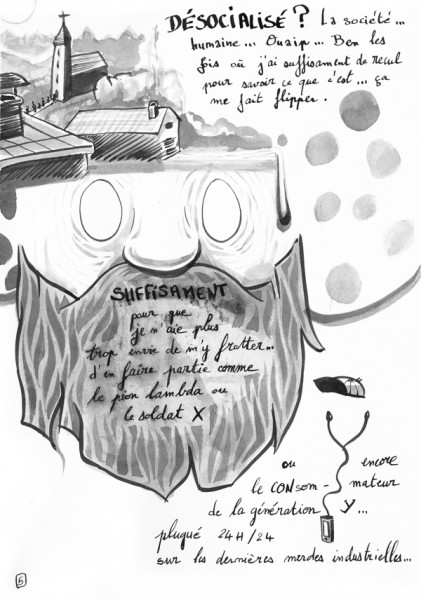 DÉSOCIALISÉ ? La société...
humaine... Ouaip... Ben les
fois où j'ai suffisament de recul
pour savoir ce que c'est... ça
me fait flipper.
SUFFISAMENT
pour que
je n'aie plus
trop envie de m'y frotter...
d'en faire partie comme
le pion lambda ou
le soldat X
ou encore
le CONsom-mateur
de la génération Y...
plugué 24H/24
sur les dernières merdes industrielles...
5